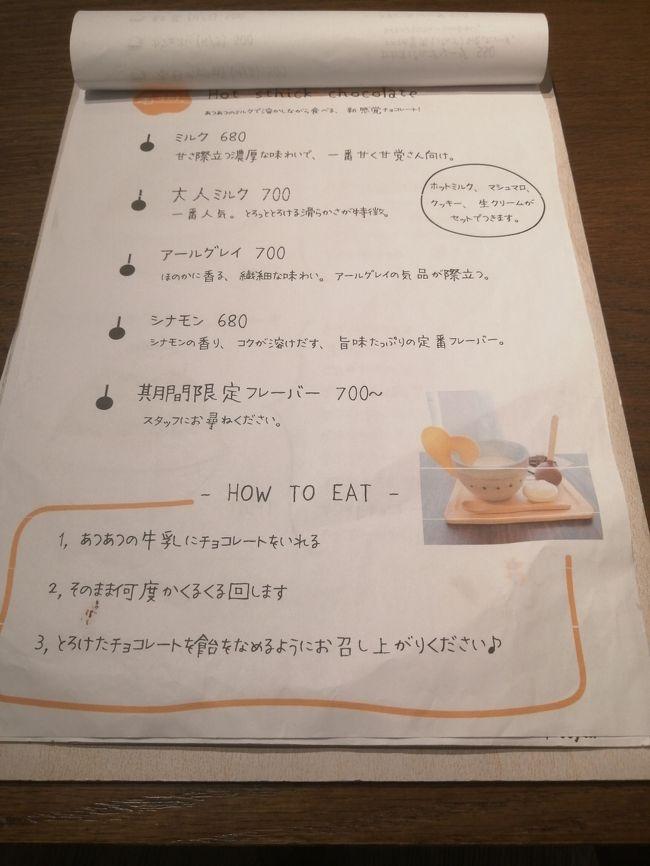 Hot sthick chocolate
あつあつのミルクで溶かしながら食べる、新感覚チョコレート!
ミルク 680
甘さ際立つ濃厚な味わいで、一番甘く甘党さん向け。
大人ミルク 700
一番人気。とろっととろける滑らかさが特徴。
ホットミルク、マシュマロ、
クッキー、生クリームが
セットでつきます。
アールグレイ 700
ほのかに香る、繊細な味わい。アールグレイの気品が際立つ。
シナモン 680
シナモンの香り、コクが溶けだす、旨味たっぷりの定番フレーバー。
期間限定フレーバー 700〜
スタッフにお尋ねください。
- HOW TO EAT -
1, あつあつの牛乳にチョコレートをいれる
2, そのまま何度かくるくる回します
3, とろけたチョコレートを飴をなめるようにお召し上がりください♪